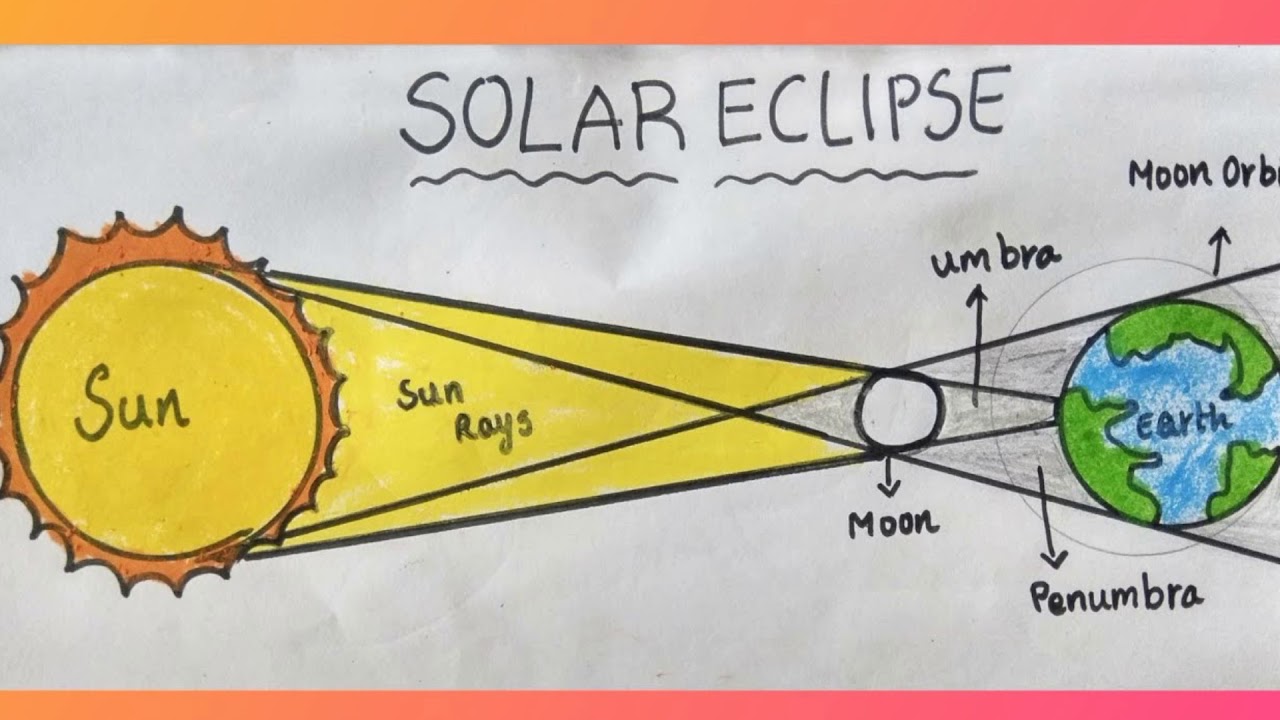 SOLAR ECLIPSE
Moon Orbi
umbra
Sun
Sun
Rays
Earth
Moon
Penumbra